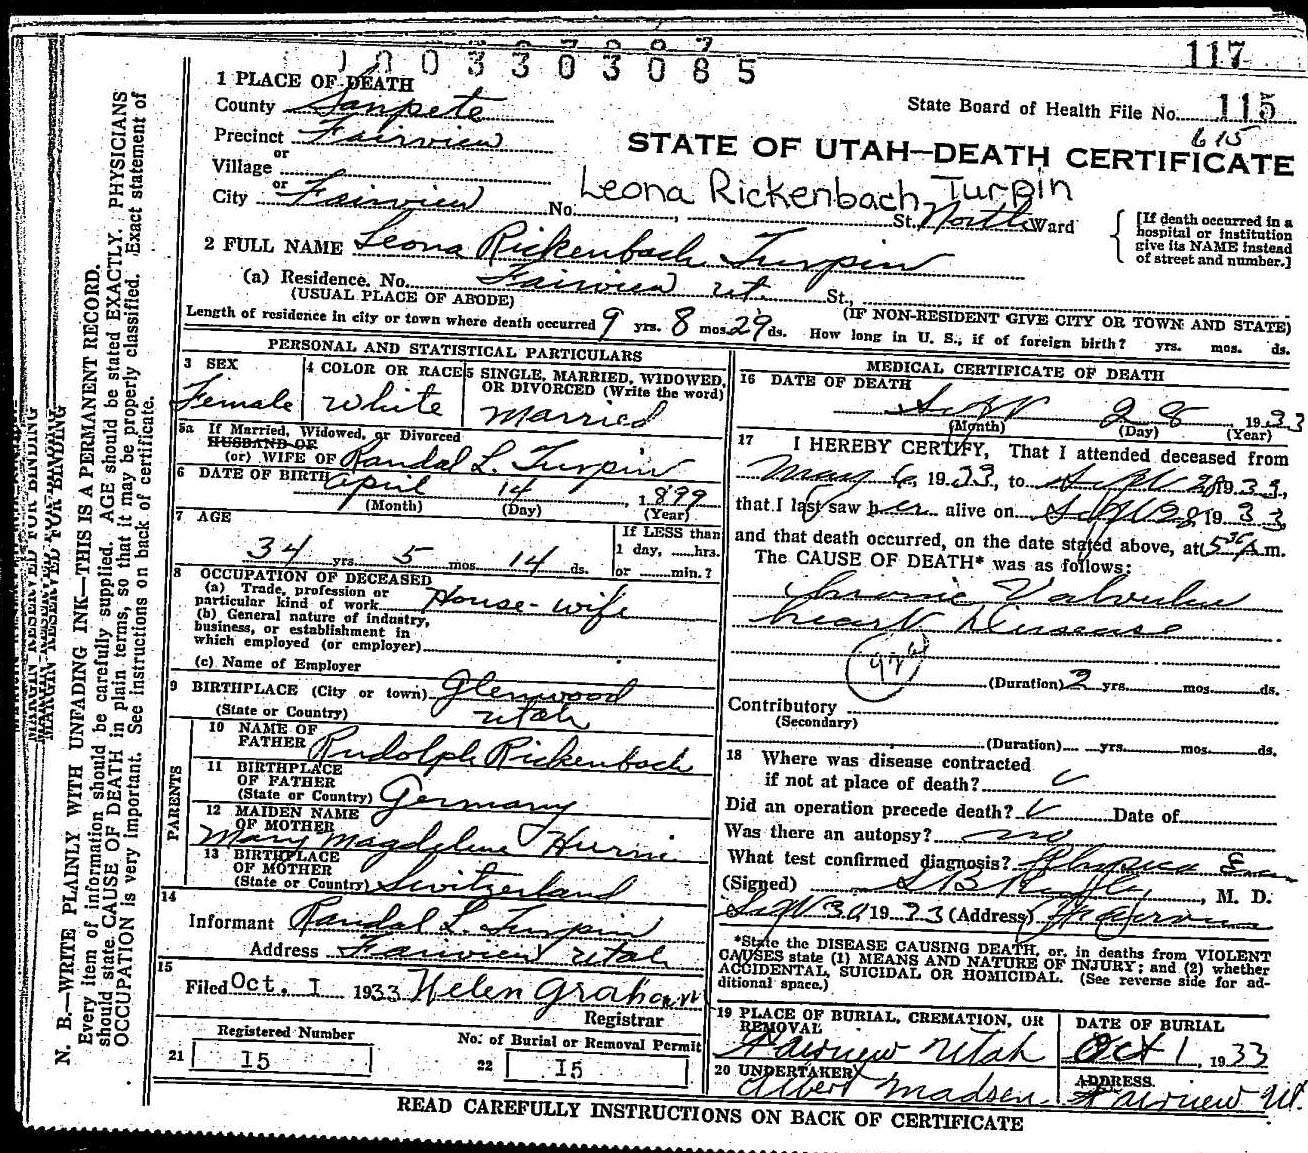 117
1003303085
State Board of Health File No. 115
615
STATE OF UTAH—DEATH CERTIFICATE
1 PLACE OF DEATH
County Sanpete
Precinct Fairview
or
Village
or
City Fairview No. , St. North Ward
Leona Rickenbach Turpin
[If death occurred in a
hospital or institution
give its NAME instead
of street and number.]
2 FULL NAME Leona Rickenbach Turpin
(a) Residence. No. Fairview Ut. St.,
(USUAL PLACE OF ABODE) (IF NON-RESIDENT GIVE CITY OR TOWN AND STATE)
Length of residence in city or town where death occurred 9 yrs. 8 mos. 29 ds. How long in U. S., if of foreign birth? yrs. mos. ds.
PERSONAL AND STATISTICAL PARTICULARS
3 SEX
Female
4 COLOR OR RACE
White
5 SINGLE, MARRIED, WIDOWED,
OR DIVORCED (Write the word)
Married
5a If Married, Widowed, or Divorced
HUSBAND OF
(or) WIFE OF Randal L. Turpin
6 DATE OF BIRTH April 14, 1899
(Month) (Day) (Year)
7 AGE
34 yrs. 5 mos. 14 ds.
If LESS than
1 day, hrs.
or min.?
8 OCCUPATION OF DECEASED
(a) Trade, profession or
particular kind of work House-wife
(b) General nature of industry,
business, or establishment in
which employed (or employer)
(c) Name of Employer
9 BIRTHPLACE (City or town) Glenwood
(State or Country) Utah
PARENTS
10 NAME OF
FATHER Rudolph Rickenbach
11 BIRTHPLACE
OF FATHER
(State or Country) Germany
12 MAIDEN NAME
OF MOTHER
Mary Magdelene Hurni
13 BIRTHPLACE
OF MOTHER
(State or Country) Switzerland
14
Informant Randal L. Turpin
Address Fairview Utah
15
Filed Oct. 1 1933 Helen Graham
Registrar
Registered Number
21 15
No. of Burial or Removal Permit
22 15
MEDICAL CERTIFICATE OF DEATH
16 DATE OF DEATH
Sept 28 1933
(Month) (Day) (Year)
17 I HEREBY CERTIFY, That I attended deceased from
May 6, 1933, to Sept 28 1933,
that I last saw her alive on Sept 28, 1933
and that death occurred, on the date stated above, at A.m.
The CAUSE OF DEATH* was as follows:
Chronic Valvular
heart Disease
(Duration) 2 yrs. mos. ds.
Contributory
(Secondary)
(Duration) yrs. mos. ds.
18 Where was disease contracted
if not at place of death?
Did an operation precede death? Date of
Was there an autopsy? no
What test confirmed diagnosis? Physical
(Signed) , M. D.
Sept 30 1933 (Address) Fairview
*State the DISEASE CAUSING DEATH, or, in deaths from VIOLENT
CAUSES state (1) MEANS AND NATURE OF INJURY; and (2) whether
ACCIDENTAL, SUICIDAL OR HOMICIDAL. (See reverse side for ad-
ditional space.)
19 PLACE OF BURIAL, CREMATION, OR
REMOVAL
Fairview Utah
DATE OF BURIAL
Oct 1, 1933
20 UNDERTAKER
Albert Madsen
ADDRESS
Fairview Ut.
READ CAREFULLY INSTRUCTIONS ON BACK OF CERTIFICATE
MARGIN RESERVED FOR BINDING
N. B.—WRITE PLAINLY WITH UNFADING INK—THIS IS A PERMANENT RECORD.
Every item of information should be carefully supplied. AGE should be stated EXACTLY. PHYSICIANS
should state CAUSE OF DEATH in plain terms, so that it may be properly classified. Exact statement of
OCCUPATION is very important. See instructions on back of certificate.